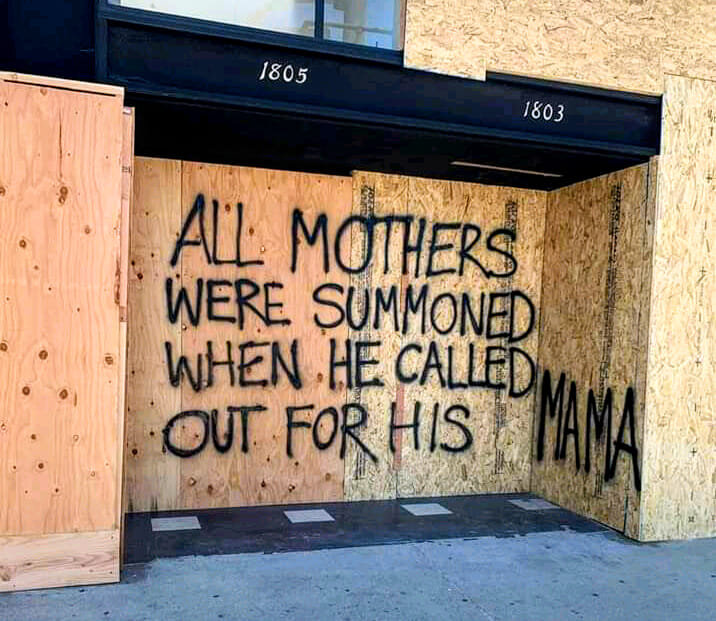 1805
1803
ALL MOTHERS
WERE SUMMONED
WHEN HE CALLED
OUT FOR HIS MAMA